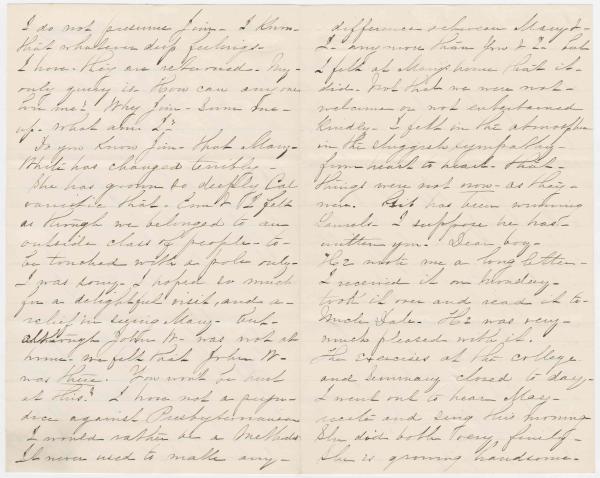 I do not presume Jim - I know -
that whatever deep feelings -
I have. they are returned. My -
only query is. How can any one
love me? Why Jim - Sum me -
up - what am I?"
Do you know Jim - that Mary -
White has changed terribly -
She has grown so deeply Cal
vanistic that - Em & I felt
as through we belonged to an
outside class of people - to -
be touched with a pole only -
I was sorry - I hoped so much
for a delightful visit, and a -
relief in seeing Mary - but -
although John W - was not at
home - we felt that John W -
was there. You wont be hurt
at this." I have not a preju -
dice against Presbyterianism
I would rather be a Methodis
It never used to make any -
difference between Mary & -
I - any more than you & I - but
I felt at Mary's home that it -
did. Not that we were not -
welcome or not entertained
kindly - I felt in the atmosphe
in the sluggish sympathy -
from heart to heart - that -
things were not now - as they -
were. has been winning
laurels - I suppose he has -
written you. Dear boy -
He wrote me a long letter -
I received it on Monday -
took it over and read it to -
Uncle Dale. He was very -
much pleased with it.
The exercises at the college
and Seminary closed to day -
I went out to hear May -
recite and sing this morning
She did both very, finely -
She is growing handsome -